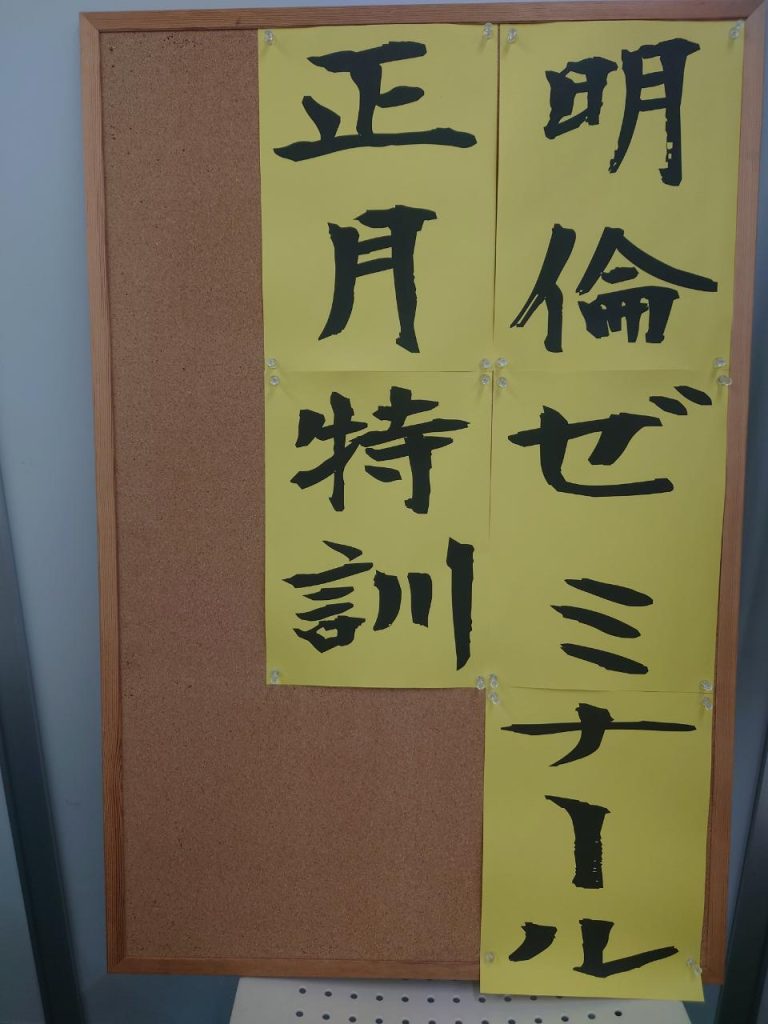 明倫ゼミナール
正月特訓